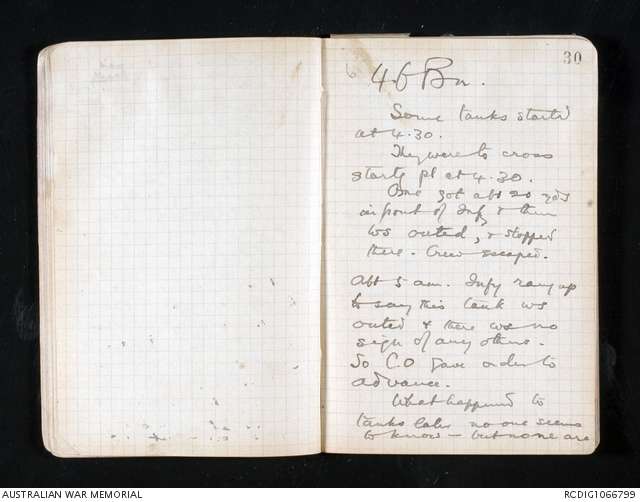 30
46 Bn.
Some tanks started
at 4.30.
They were to cross
startg pl at 4.30.
One got abt 20 yds
in front of Inf, & then
ws outed, & stopped
there. Crew escaped.
Abt 5 am. Infy rang up
to say this tank ws
outed & there ws no
sign of any others.
So C.O gave order to
advance.
What happened to
tanks later no one seems
to know – but none are
AUSTRALIAN WAR MEMORIAL
RCDIG1066799